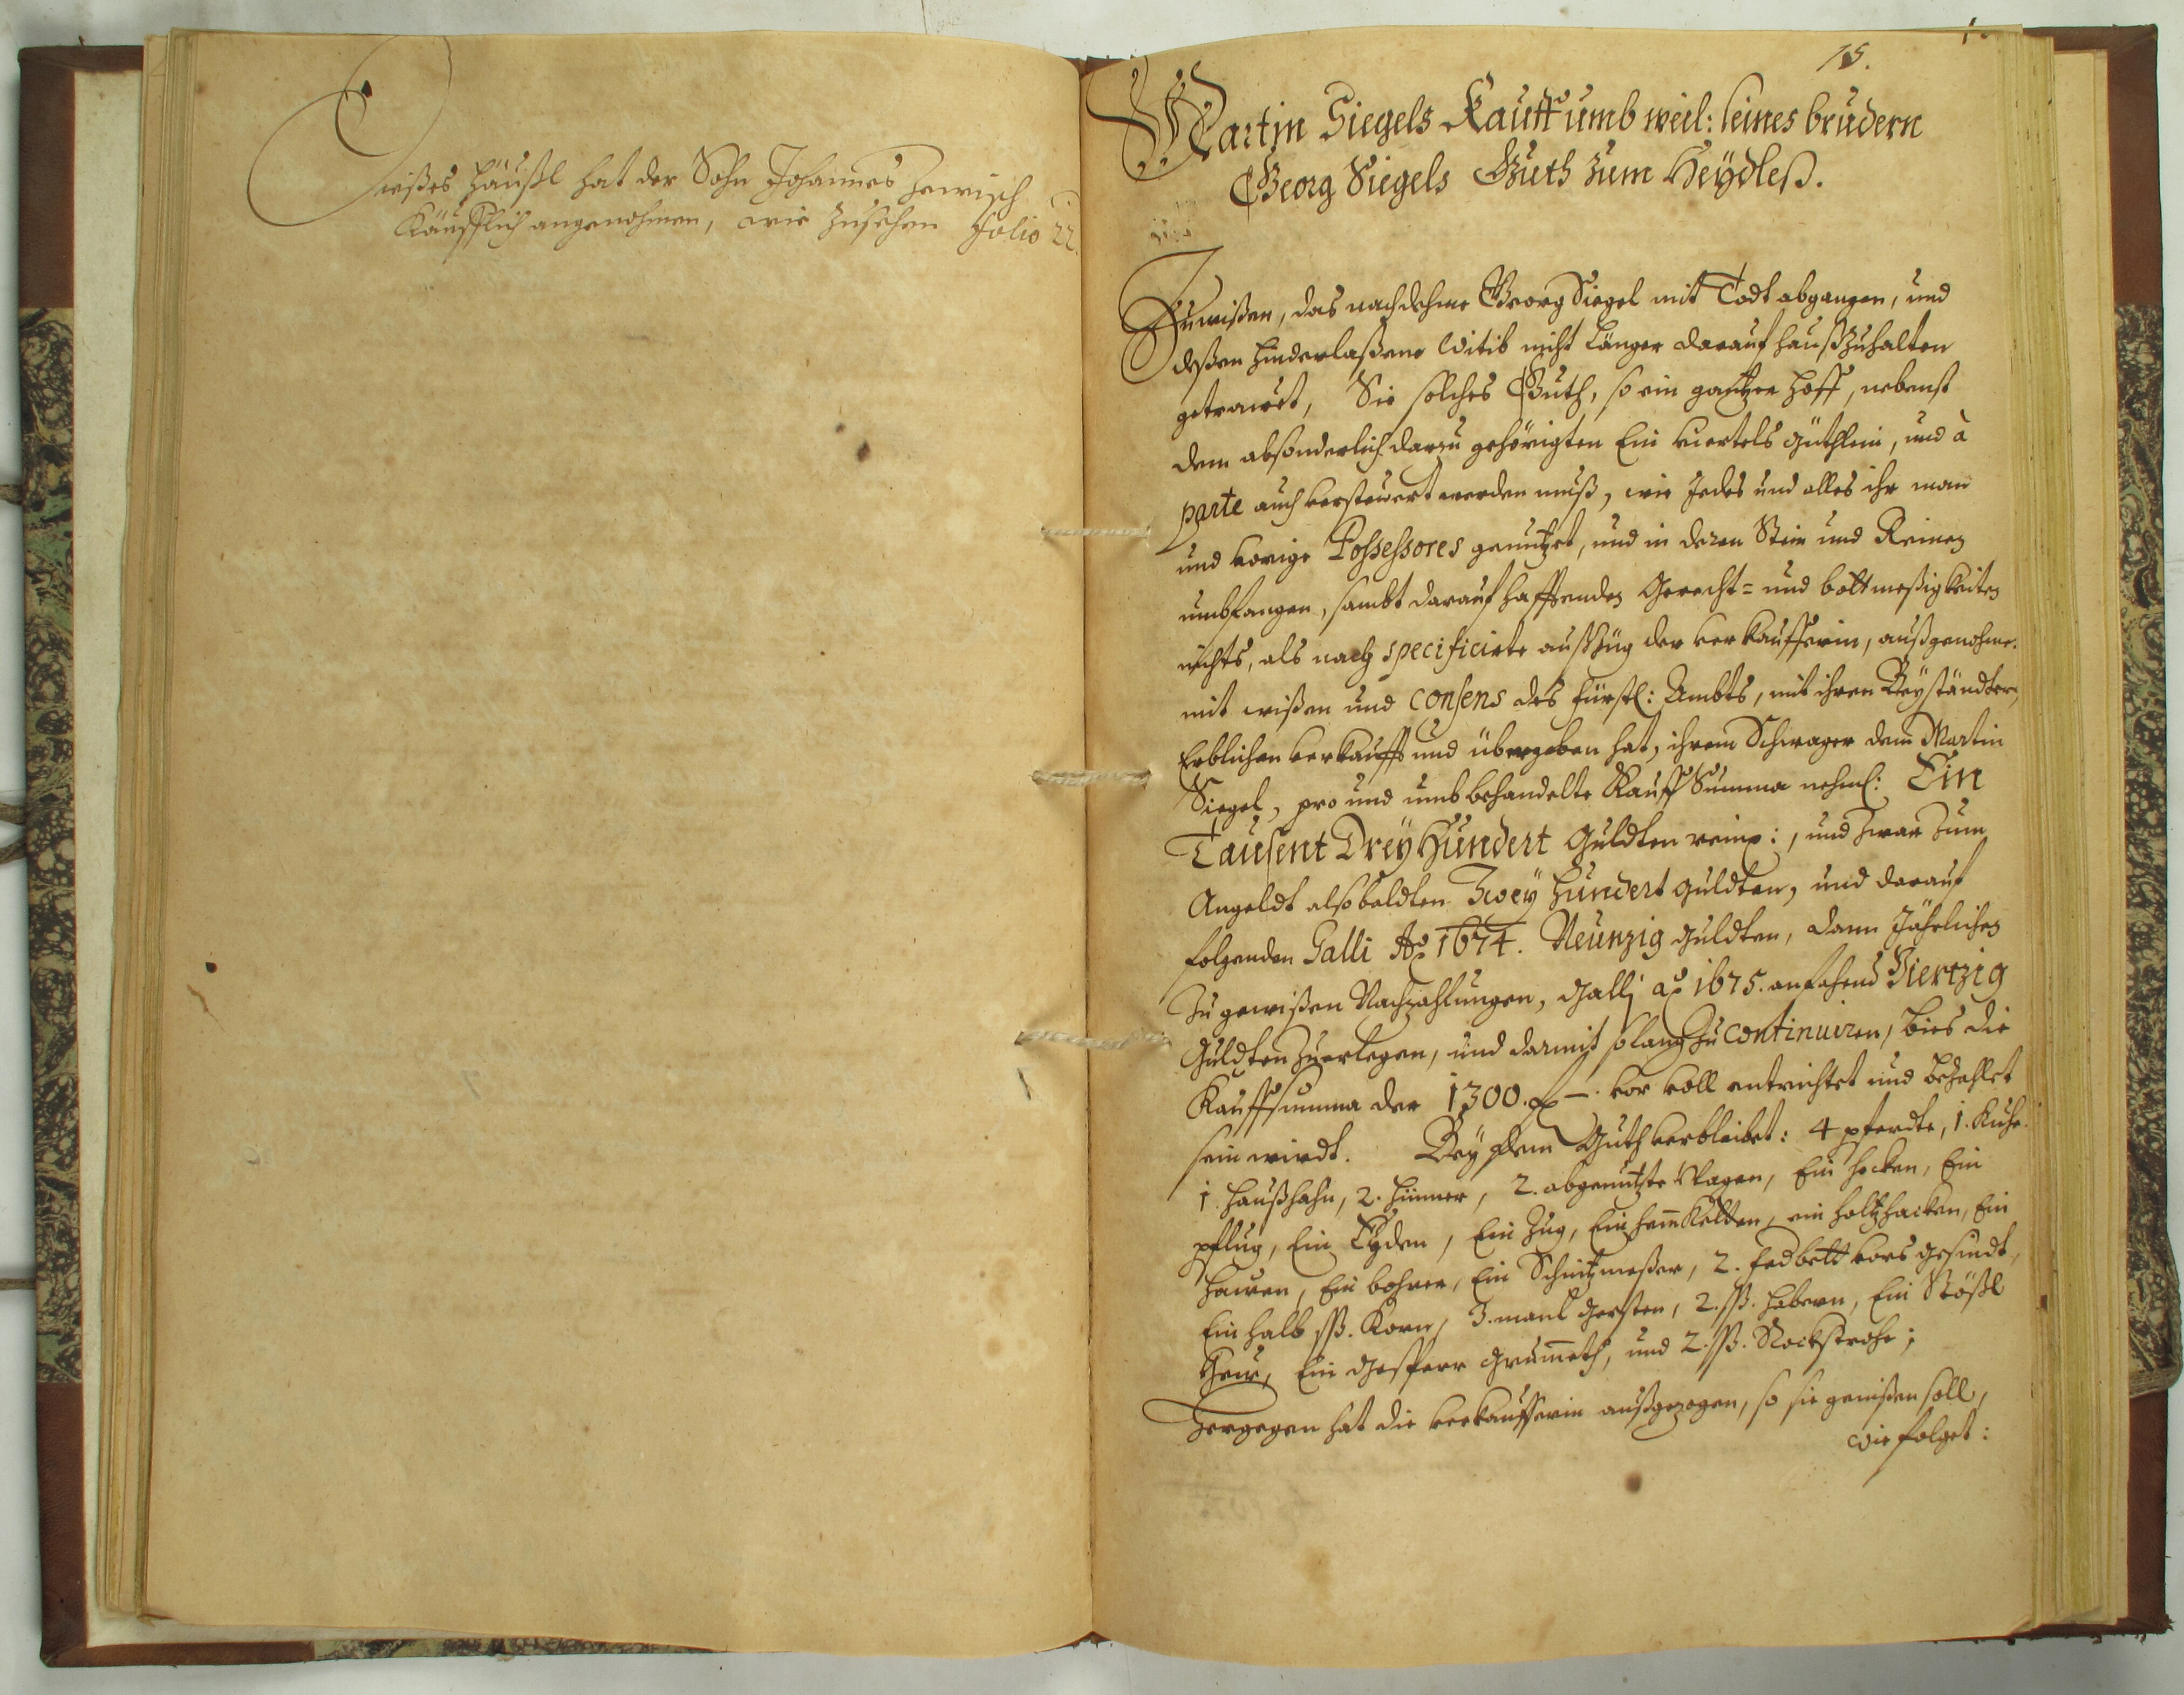 Dießes Häußl hat der Sohn Johannes
Käufflich angenohmen, wie zusehen folio 22.
15.
Martin Siegels Kauff umb weil: seines brudern
Georg Siegels Guth zum Heÿdleß.
Zuwißen, das nachdehme Georg Siegel mit Todt abgangen, und
deßen hinderlaßene Witib nicht länger darauf haußzuhalten
getrauet, Sie solches Guth, so ein gantzer Hoff, nebenst
dem absonderlich darzu gehörigten Ein viertels güthlein, und à
parte auch versteuert werden muß, wie Jedes und alles ihr man
und vorige Possessores genutzet, und in deren Stein und Reinen
umbfangen, sambt darauf hafftenden Gerecht= und bottmeßigkeiten
nichts, als nach specificirte außzüg der verkaufferin, außgenohmen.
mit wißen und consens des fürstl: Ambts, mit ihren Beÿständtern,
Erblichen verkaufft und übergeben hat, ihrem Schwager dem Martin
Siegel, pro und umb behandelte Kauff Summa nehml: Ein
Tausent Dreÿ Hundert Guldten reinl:, und zwar zum
Angeldt alsobaldten Zweÿ Hundert guldten, und darauf
folgenden Galli Ao 1674. Neunzig guldten, dann Jährlichen
zu gewißen Nachzahlungen, Galli ao 1675. anfahend Viertzig
Guldten zuerlegen, und darmit solang zu continuiren, bies die
Kauffsumma der 1300. fl — vor voll entrichtet und bezahlet
sein wirdt. Beÿ dem Guth verbleibet: 4 pferdte, 1. Kuhe.
1 Haußhahn, 2. Hünner, 2. abgenutzte Wagen, Ein hocken, Ein
pflug, Ein Eÿden, Ein Zug, Ein hem̅ketten, ein holtzhacken, Ein
hauen, Ein bohrer, Ein Schnitzmeßer, 2. fedbett vors gesindt,
Ein halb ßß. Korn, 3. manl gersten, 2. ßß. habern, Ein Stößl
heu, Ein gesperr grum̅eth, und 2. ßß. Rockstrohe;
Hergegen hat die verkaufferin außgezogen, so sie genißen soll,
wie folget: